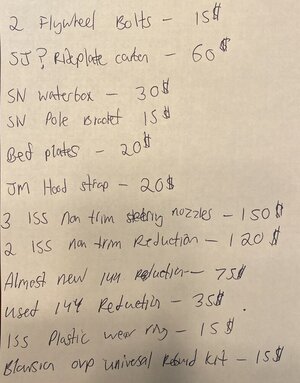 2 Flywheel Bolts - 15$
SJ ? Rideplate carbon - 60$
SN waterbox - 30$
SN Pole Bracket 15$
Bed plates - 20$
JM Hood strap - 20$
3 155 non trim steering nozzles - 150$
2 155 non trim Reduction - 120$
Almost new 144 Reduction - 75$
used 144 Reduction - 35$
155 Plastic wear ring - 15$
Blowsion ovp universal Rebuild Kit - 15$